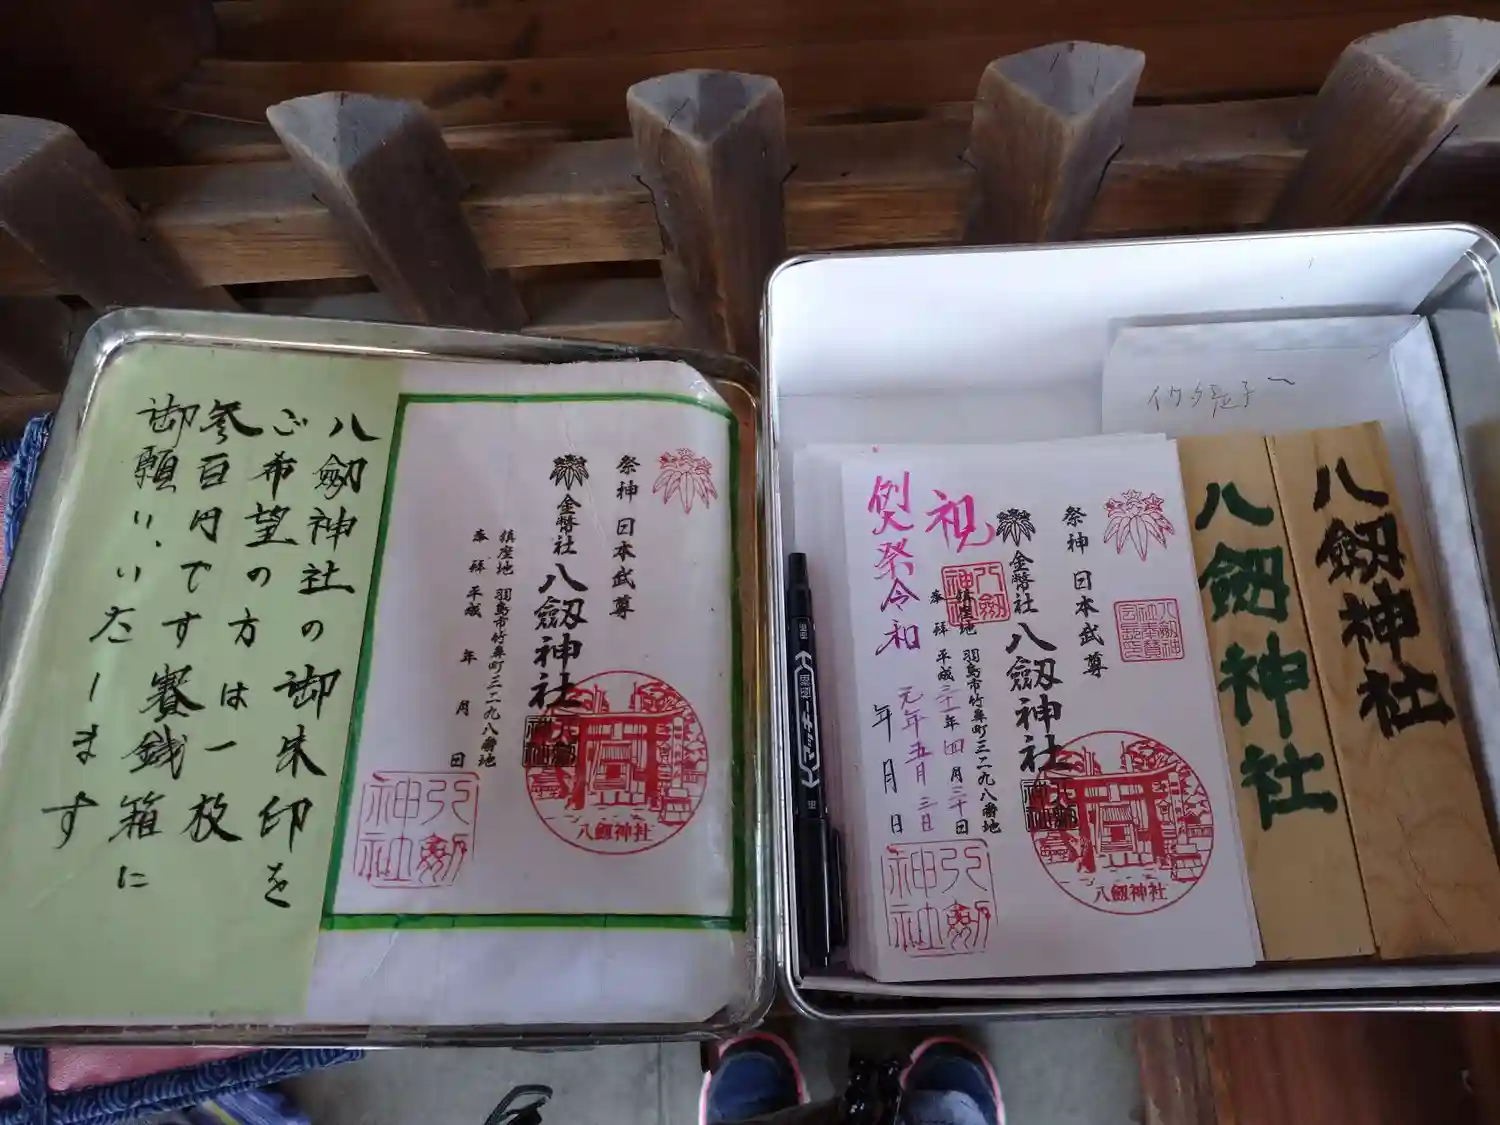 八劔神社の御朱印を
ご希望の方は一枚
参百円です賽銭箱に
御願いいたします
祭神 日本武尊
金幣社 八劔神社
鎮座地 羽島市竹鼻町三二九八番地
奉拝 平成 年 月 日
八劔神社
八劔神社
祭神 日本武尊
金幣社 八劔神社
鎮座地 羽島市竹鼻町三二九八番地
奉拝 平成三十一年四月三十日
祝
例祭令和元年五月三日
年 月 日
八劔神社
八劔神社
八劔神社
八劔神社
八劔神社
マッキー